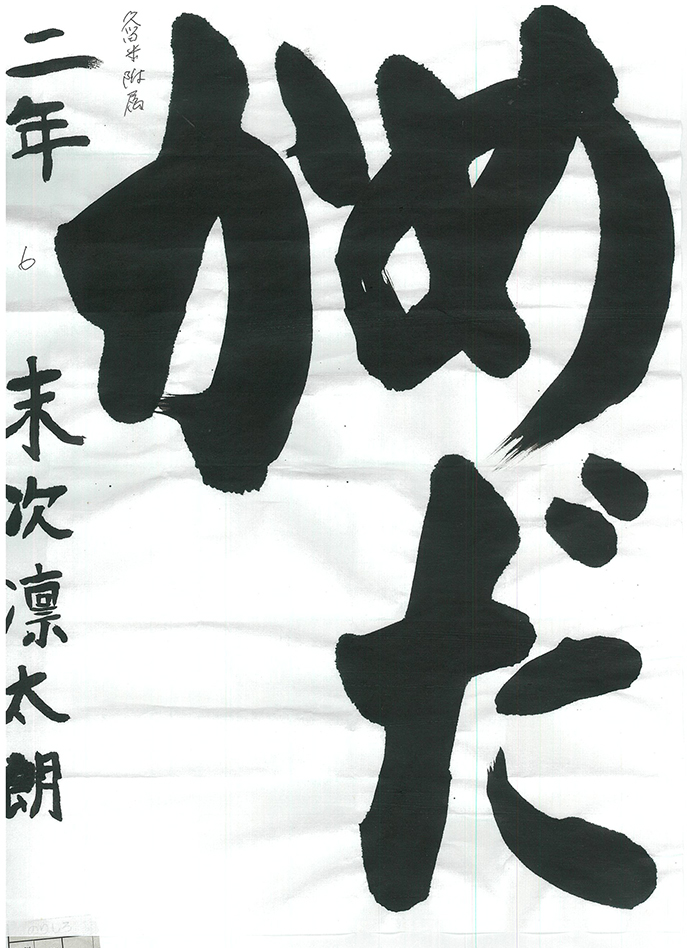 めだ
か
久留米附属
二年 6 末次凛太朗